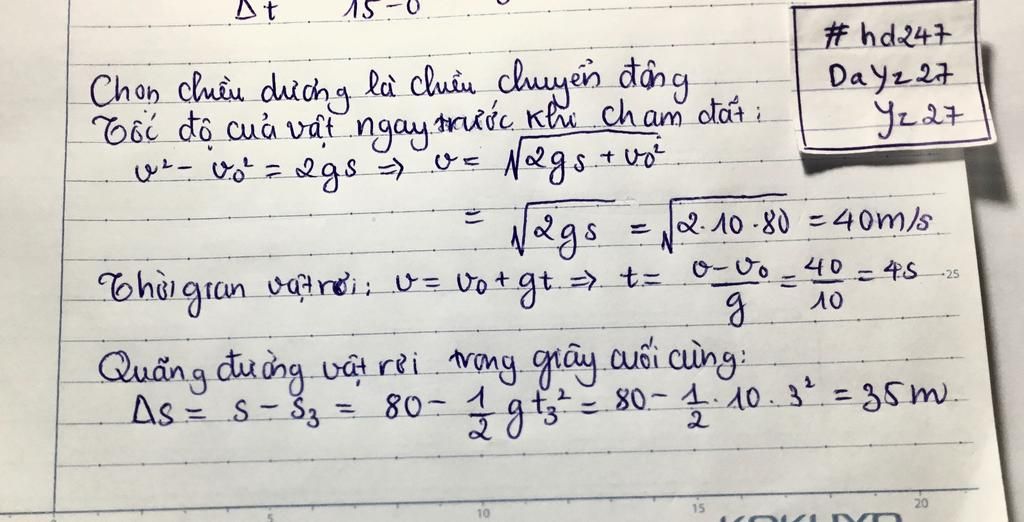 Δt 15-0
# hd247
DaYz27
Yz27
Chọn chiều dương là chiều chuyển động
Tốc độ của vật ngay trước khi chạm đất:
v² - v₀² = 2gs => v = √2gs + v₀²
= √2gs = √2.10.80 = 40m/s
Thời gian vật rơi: v = v₀ + gt => t = v-v₀/g = 40/10 = 4s
25
Quãng đường vật rơi trong giây cuối cùng:
Δs = s - s₃ = 80 - 1/2 gt₃² = 80 - 1/2 . 10 . 3² = 35m
5 10 15 20
KOKUYO